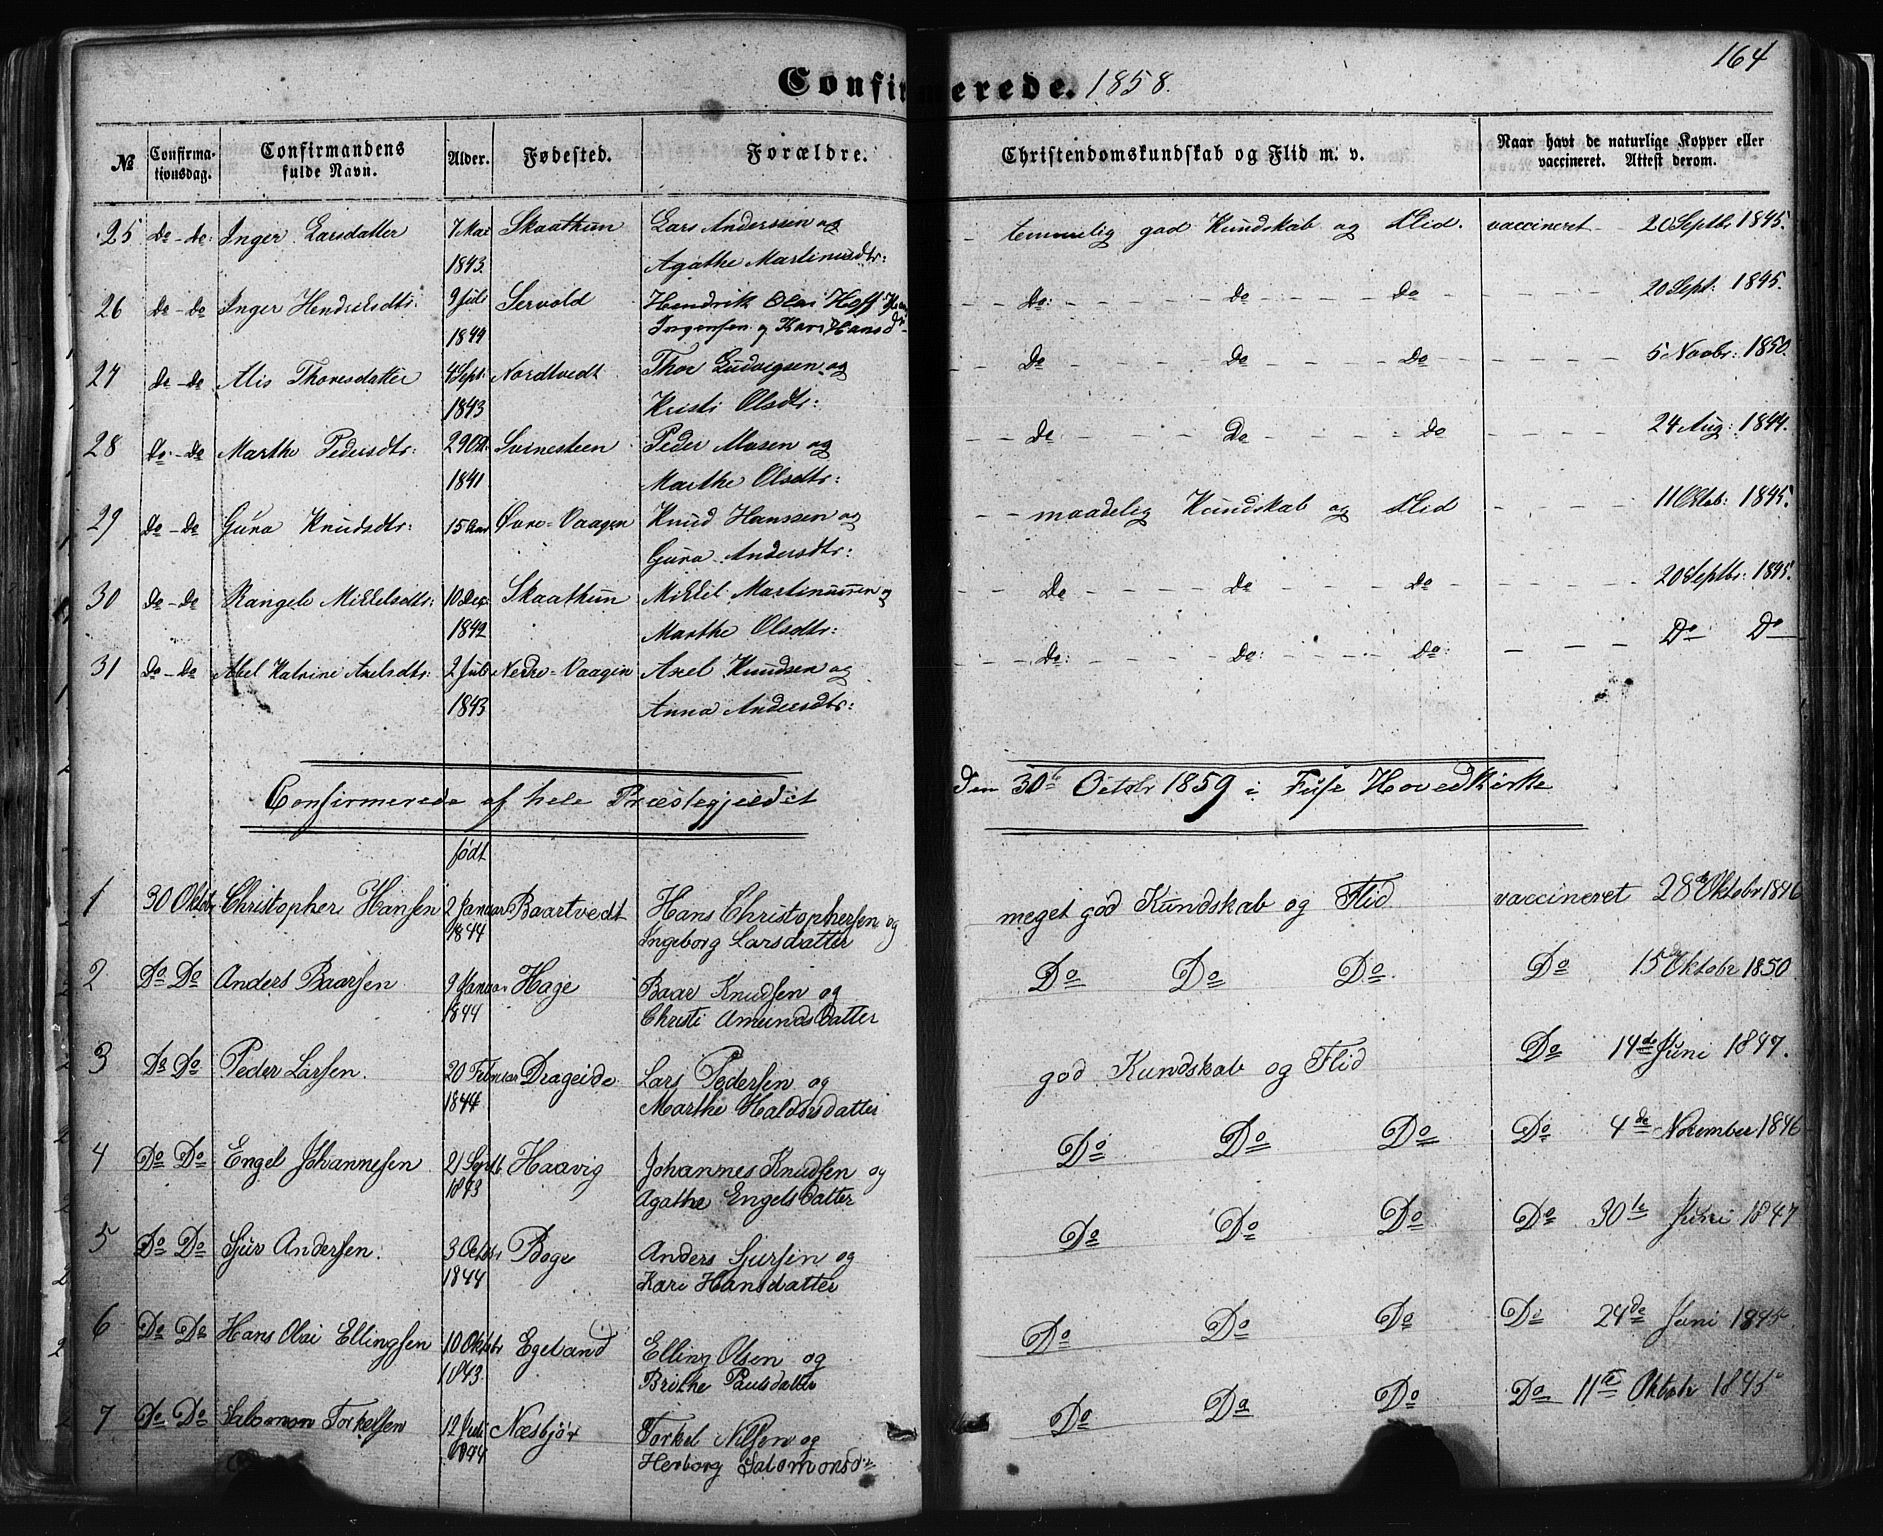 164
Confirmerede. 1858.
№ Confirmationsdag. Confirmandens fulde Navn. Alder. Fødested. Forældre. Christendomskundskab og Flid m. v. Naar havt de naturlige Kopper eller vaccineret. Attest derom.
25 do - do: Inger Larsdatter 7 Mai Skaathun Lars Anderssen og temmelig god Kundskab og Flid. vaccineret 20 Septbr 1845.
1843. Agathe Martinusdtr:
26 do - do Inger Hendriksdtr: 9 Juli Servold Hendrik Olai Hoff do: do do 20 Sept: 1845.
1844 Jørgensen og Kari Hansd
27 do - do Alis Thoresdatter 4 Sept: Nordtvedt Thor Ludvigsen og do do do 5 Novbr: 1850.
1843 Kristi Olsdtr:
28 do - do Marthe Pedersdtr: 29 Okt: Svinesteen Peder Masen og do do do 24 Aug: 1844.
1841 Marthe Olsdtr:
29 do - do Gura Knudsdtr: 15 Aar Øvre-Vaagen Knud Hanssen og maadelig Kundskab og Flid 11 Oktob: 1845.
Gura Andersdtr:
30 do - do Rangele Mikkelsdtr: 10 Dec: Skaathun Mikkel Martinussen og do do do 20 Septbr: 1845.
1842 Marthe Olsdtr:
31 do - do Abel Katrine Axelsdtr: 2 Juli Nedre-Vaagen Axel Knudsen og do: do: do: Do Do
1843 Anna Andersdtr:
Confirmerede af hele Præstegjeldet den 30te Octobr 1859 i Fuse Hovedkirke
født
1 30 Oktobr Christopher Hansen 2 Januar Baartvedt Hans Christophersen og meget god Kundskab og Flid vaccineret 28de Oktobr 1846
1844 Ingeborg Larsdatter
2 Do Do Anders Baarsen 9 Januar Hage Baar Knudsen og Do Do Do. Do 15de Oktobr 1850
1844 Christi Amundsdatter
3 Do Do Peder Larsen. 20 Februar Drageide Lars Pedersen og god Kundskab og Flid Do 14de Juni 1847.
1844 Marthe Haldorsdatter
4 Do Do Engel Johannesen 21 Septb Haavig Johannes Knudsen og Do Do Do Do 4de November 1846
1843 Agathe Engelsdatter
5 Do Do Sjur Andersen. 3 Octobr Boge Anders Sjursen og Do Do Do Do 30te Juni 1847
1844 Kari Hansdatter
6 Do Do Hans Olai Ellingsen 10 Oktobr Egeland Elling Olsen og Do Do Do Do 24de Juni 1845.
1843 Brithe Paulsdatter
7 Do Do Salomon Torkelsen 12 Juli Næsbjør Torkel Nilsen og Do Do Do Do 11te Oktobr 1845
1844 Herborg Salomonsd